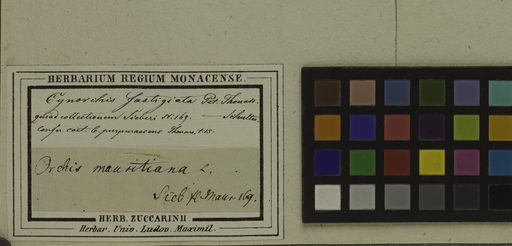 HERBARIUM REGIUM MONACENSE.
Cynorchis fastigiata Pet. Thouars.
quoad collectionem Sieberi N. 169. — Schultes
confer. cart. Thouars, t. 13.
Orchis mauritiana L.
Sieb. fl. Maur. 169.
HERB. ZUCCARINII
Herbar. Univ. Ludov. Maximil.